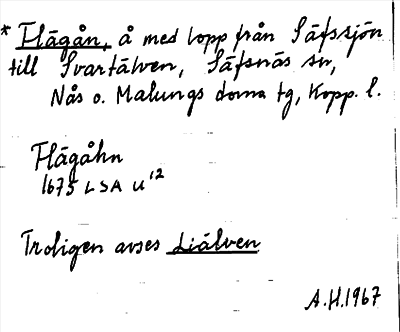 * Flägån, å med lopp från Säfssjön
till Svartälven, Säfsnäs sn,
Nås o. Malungs doms tg, Kopp. l.
Flägåhn
1675 LSA U 12
Troligen avses Liälven
A.H. 1967